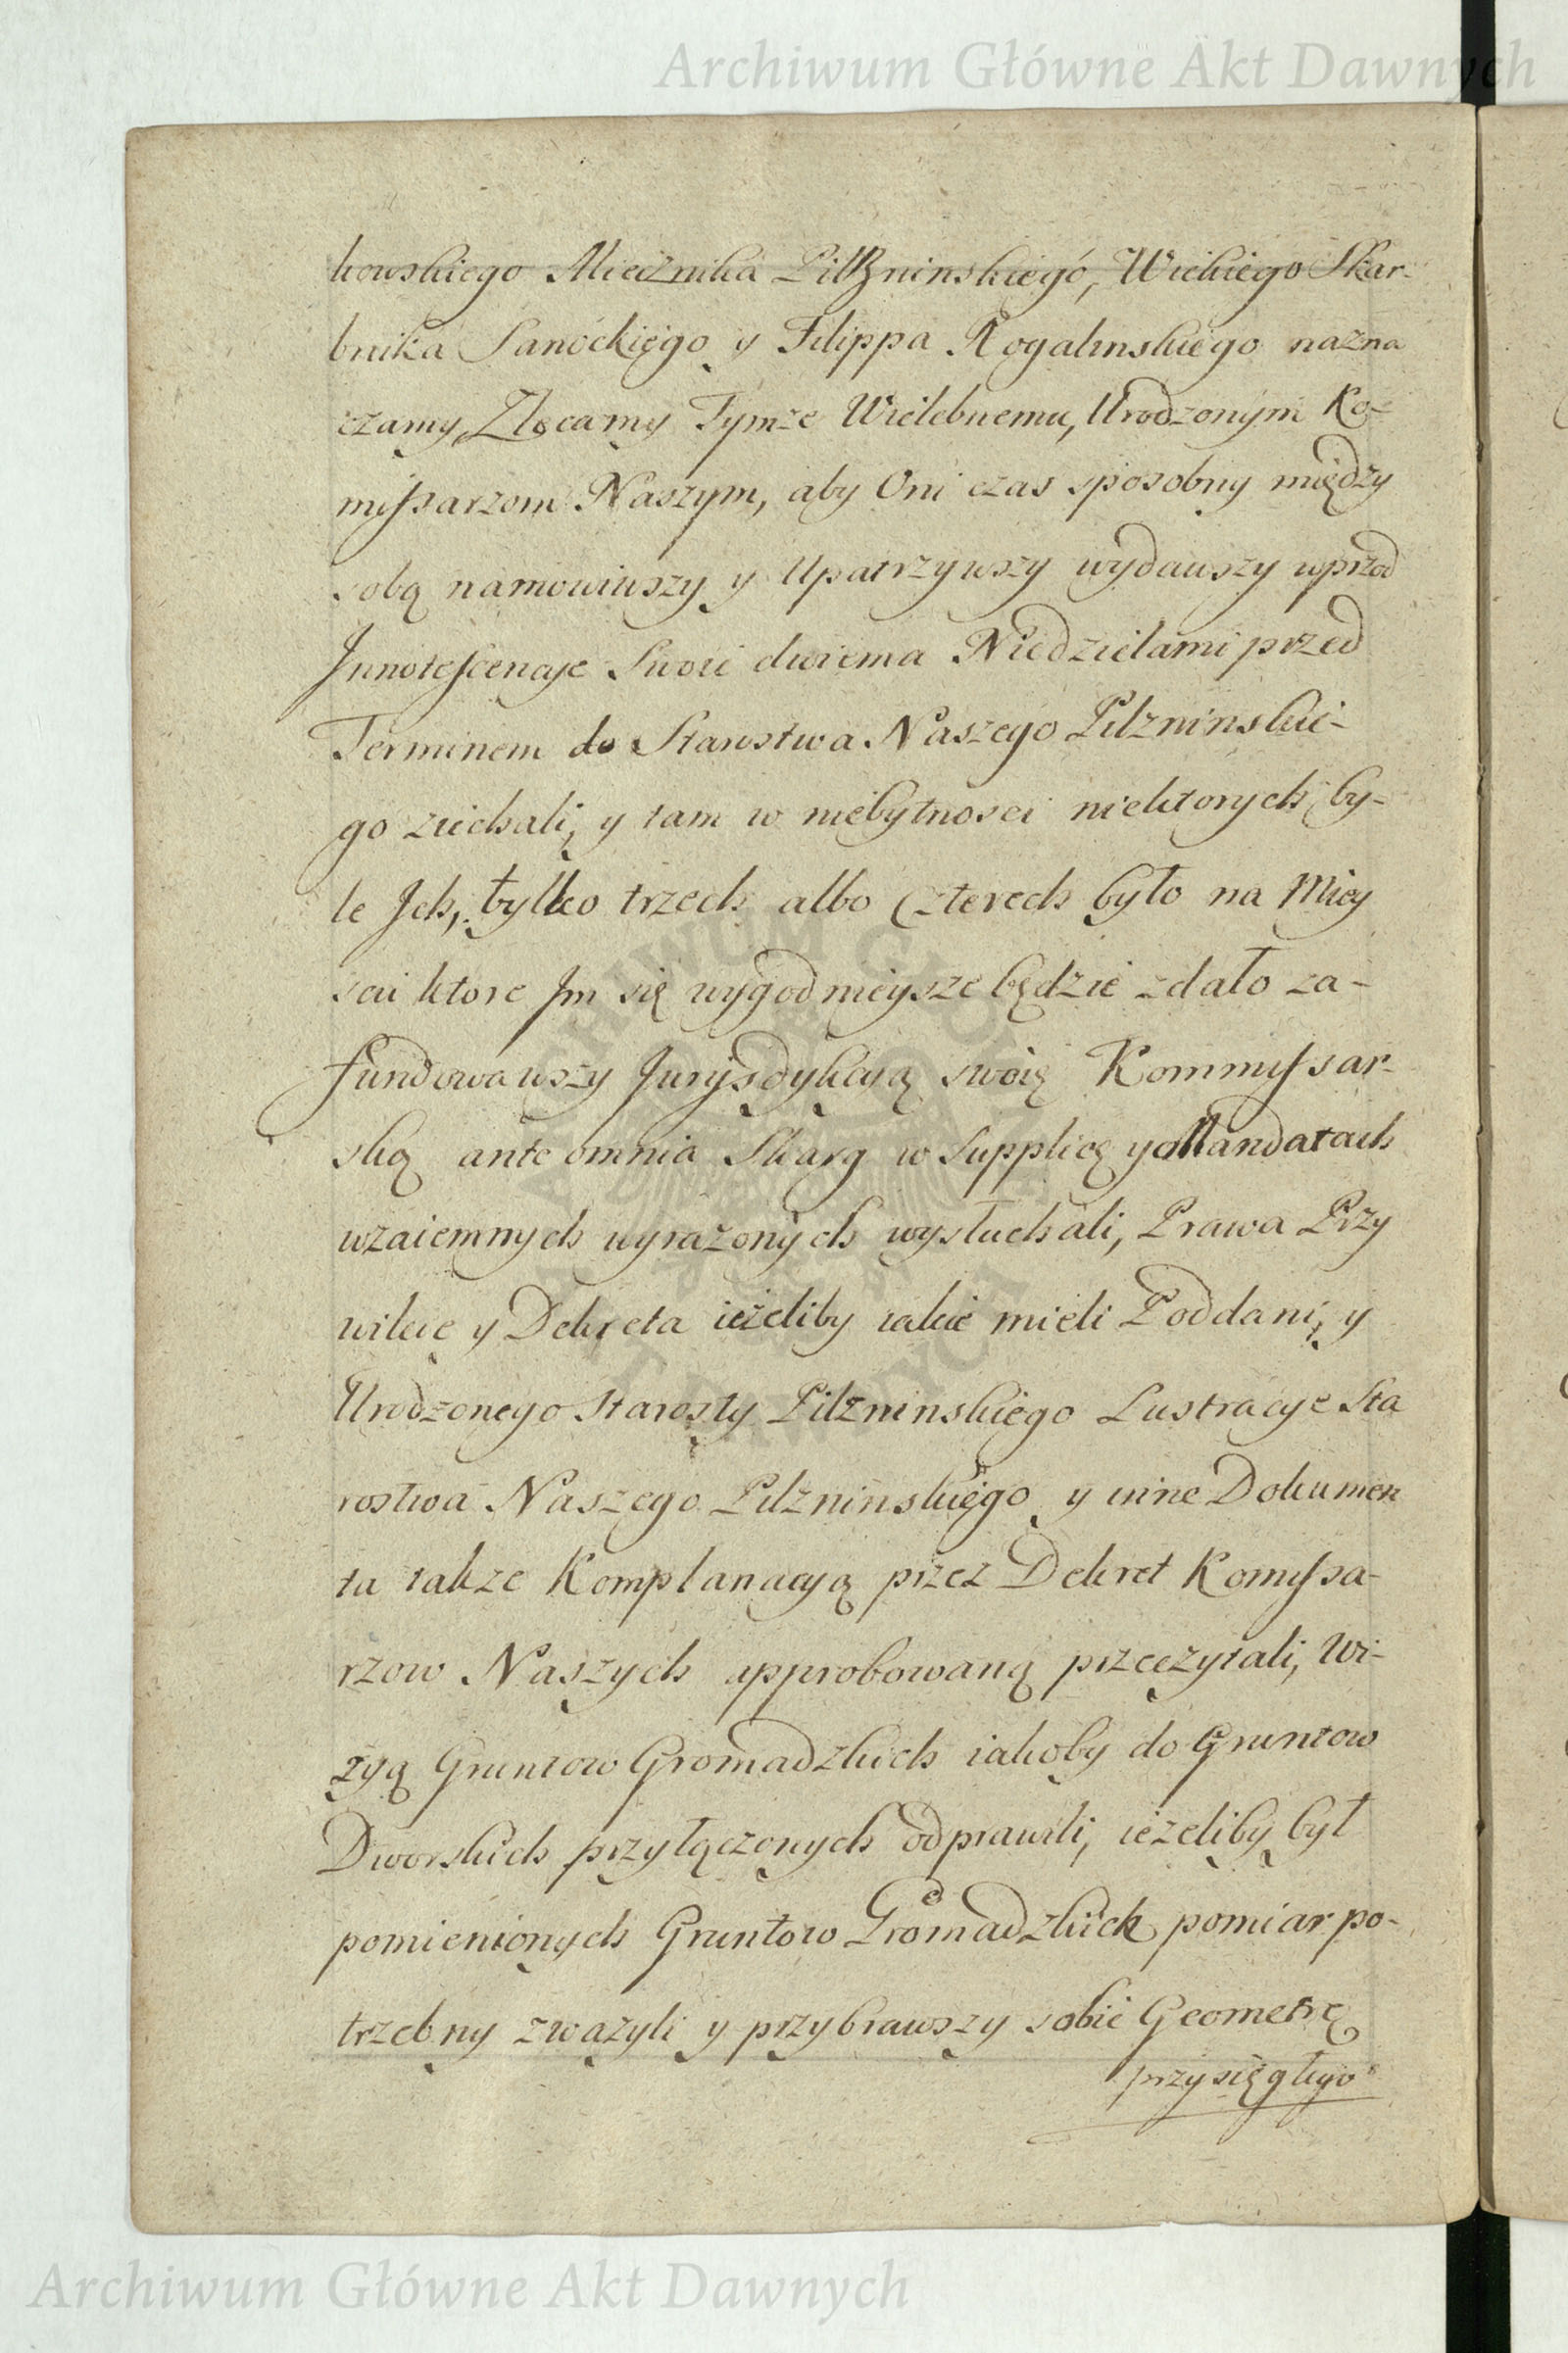 Archiwum Główne Akt Dawnych
kowskiego Miecznika Pilzninskiego, Wickiego Skar-
bnika Sanockiego y Filippa Rogalinskiego nazna
czamy, Zlecamy Tymże Wielebnemu, Urodzonym Ko-
missarzom Naszym, aby Oni czas sposobny między
sobą namowiwszy y upatrzywszy wydawszy wprzod
Innotescencye Swoie dwiema Niedzielami przed
Terminem do Starostwa Naszego Pilzninskie-
go ziechali, y tam w niebytnosci niektorych by-
le Ich, tylko trzech albo czterech było na Miey
scu ktore Im się wygodnieysze będzie zdało za-
fundowawszy Juryzdykcyą swoię Kommissar-
ską ante omnia Skarg w Supplicę y Mandatach
wzaiemnych wyrażonych wysłuchali, Prawa Przy
wileie y Dekreta ieżeliby iakie mieli Poddani, y
Urodzonego Starosty Pilzninskiego Lustracye Sta
rostwa Naszego Pilzninskiego y inne Dokumen
ta także Komplanacyą przez Dekret Komissa-
rzow Naszych approbowaną przeczytali, Wi-
zyą Gruntow Gromadzkich iakoby do Gruntow
Dworskich przyłączonych odprawili, ieżeliby był
pomienionych Gruntow Gromadzkich pomiar po-
trzebny zważyli y przybrawszy sobie Geometrę
przysięgłego
Archiwum Główne Akt Dawnych